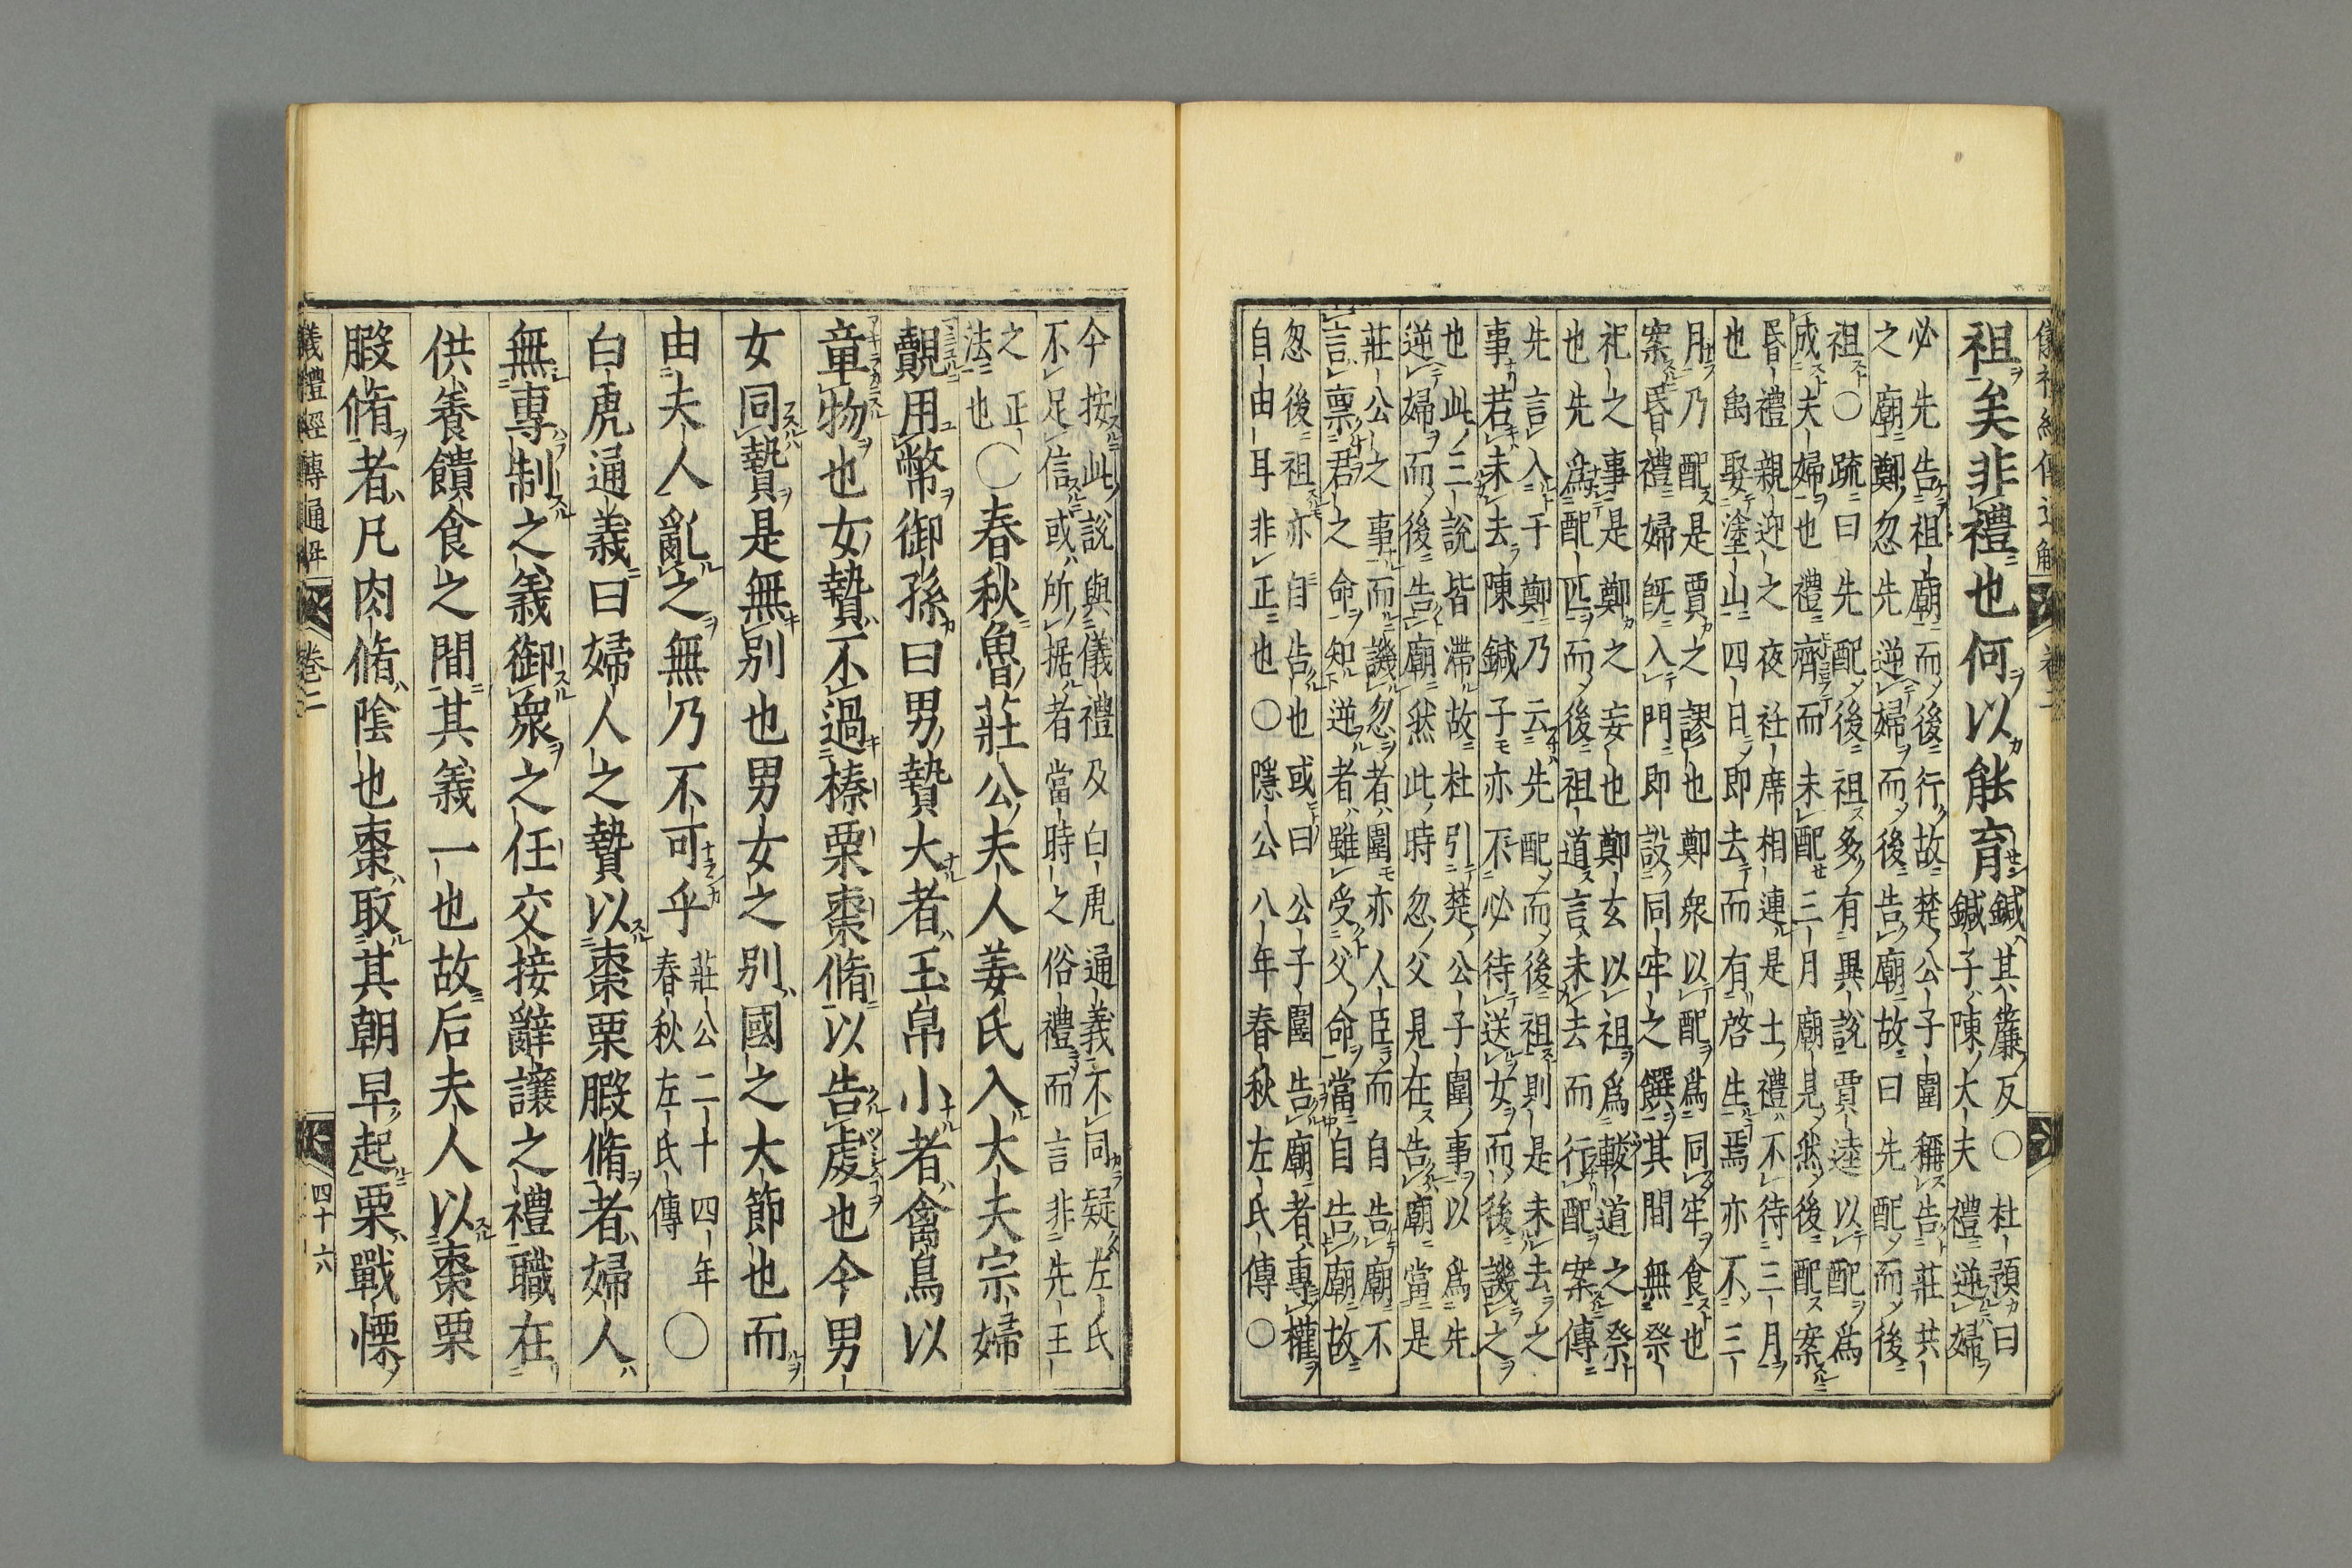 儀禮經傳通解 卷二
祖矣非禮也何以能育鍼其簾反○杜預曰
鍼子陳大夫禮逆婦
必先告祖廟而後行故楚公子圍稱告莊共
之廟鄭忽先逆婦而後告廟故曰先配而後
祖○疏曰先配後祖多有異說賈逵以配爲
成夫婦也禮齊而未配三月廟見然後配案
昏禮親迎之夜衽席相連是士禮不待三月
也禹娶塗山四日即去而有啓生焉亦不三
月乃配是賈之謬也鄭衆以配爲同牢食也
案昏禮婦旣入門即設同牢之饌其間無祭
祀之事是鄭之妄也鄭玄以祖爲軷道之祭
也先爲配匹而後祖道言未去而行配案傳
先言入于鄭乃云先配而後祖則是未去之
事若未去陳鍼子亦不必待送女而後譏之
也此三說皆滯故杜引楚公子圍事以爲先
逆婦而後告廟然此時忽父見在告廟當是
莊公之事而譏忽者圍亦人臣而自告廟不
言禀君之命知逆者雖受父命當自告廟故
忽後祖亦自告也或曰公子圍告廟者專權
自由耳非正也○隱公八年春秋左氏傳○
今按此說與儀禮及白虎通義不同疑左氏
不足信或所据者當時之俗禮而言非先王
之正
法也○春秋魯莊公夫人姜氏入大夫宗婦
覿用幣御孫曰男贄大者玉帛小者禽鳥以
章物也女贄不過榛栗棗脩以告虔也今男
女同贄是無別也男女之別國之大節也而
由夫人亂之無乃不可乎莊公二十四年
春秋左氏傳○
白虎通義曰婦人之贄以棗栗腶脩者婦人
無專制之義御衆之任交接辭讓之禮職在
供養饋食之間其義一也故后夫人以棗栗
腶脩者凡肉脩陰也棗取其朝早起栗戰慄
儀禮經傳通解 卷二 四十六